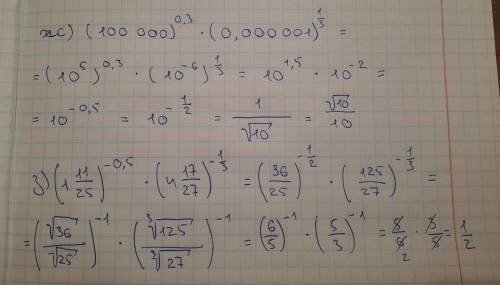 ж) (100 000)^{0,3} · (0,000 001)^{\frac{1}{3}} =
= (10^5)^{0,3} · (10^{-6})^{\frac{1}{3}} = 10^{1,5} · 10^{-2} =
= 10^{-0,5} = 10^{-\frac{1}{2}} = \frac{1}{\sqrt{10}} = \frac{\sqrt{10}}{10}
з) (1\frac{11}{25})^{-0,5} · (4\frac{17}{27})^{-\frac{1}{3}} = (\frac{36}{25})^{-\frac{1}{2}} · (\frac{125}{27})^{-\frac{1}{3}} =
= (\frac{\sqrt{36}}{\sqrt{25}})^{-1} · (\frac{\sqrt[3]{125}}{\sqrt[3]{27}})^{-1} = (\frac{6}{5})^{-1} · (\frac{5}{3})^{-1} = \frac{5}{6}_2 · \frac{3}{5} = \frac{1}{2}